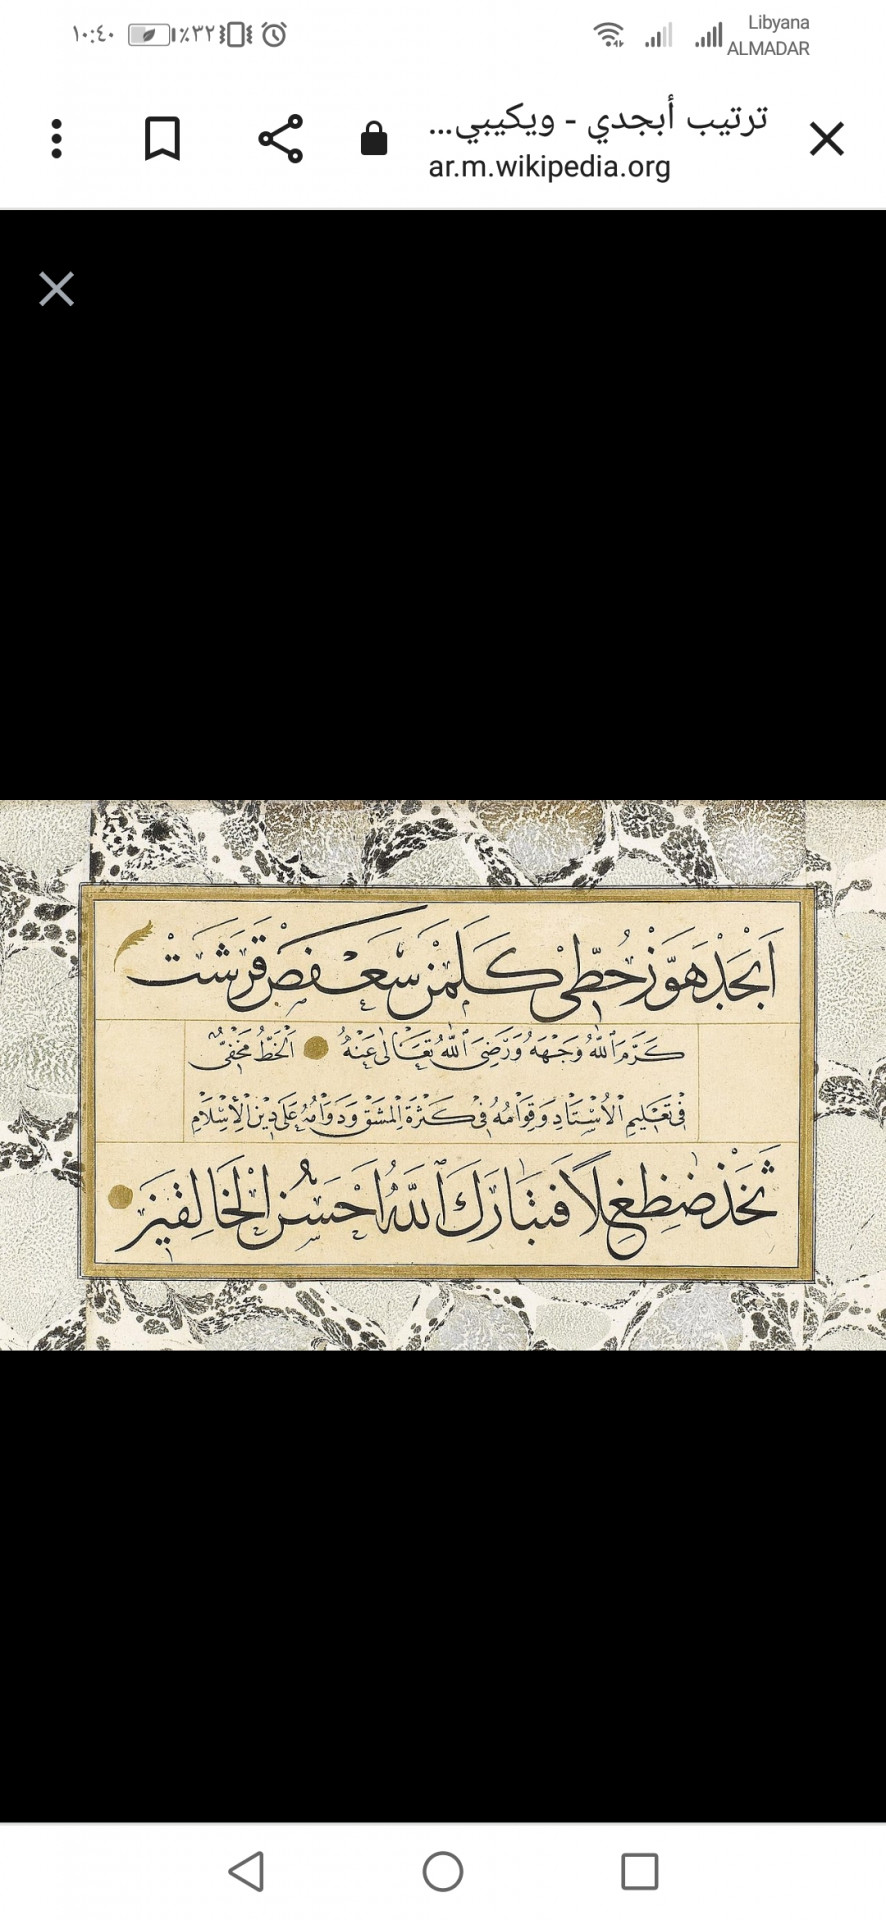 ١٠:٤٠ ٪٣٢ Libyana
ALMADAR
ترتيب أبجدي - ويكيبي...
ar.m.wikipedia.org
اَبْجَدْ هَوَّزْ حُطِّي كَلَمَنْ سَعْفَصْ قَرَشَتْ
كَرَّمَ اللّٰهُ وَجْهَهُ وَرَضِيَ اللّٰهُ تَعَالٰى عَنْهُ اَلْخَطُّ مَخْفِيٌّ
فِي تَعْلِيمِ الْاُسْتَادِ وَقِوَامُهُ فِي كَثْرَةِ الْمَشْقِ وَدَوَامُهُ عَلٰى دِينِ الْاِسْلَامِ
ثَخَذْ ضَظِغٍ لًا فَتَبَارَكَ اللّٰهُ اَحْسَنُ الْخَالِقِينَ